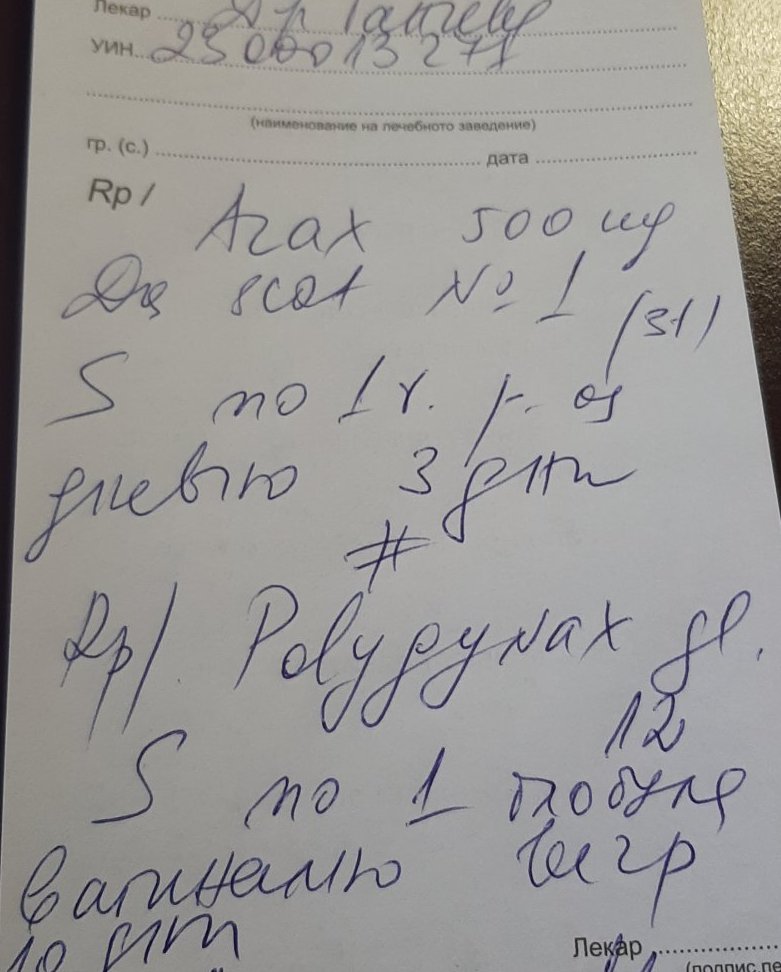 Лекар
УИН 2300013271
(наименование на лечебното заведение)
гр. (с.) дата
Rp /
Azax 500 mg
Da scat № 1
(3t)
S по 1 т. p. os
дневно 3 дни
#
Rp/. Polygynax gl.
12
S по 1 глобула
вагинално вечер
10 дни
Лекар